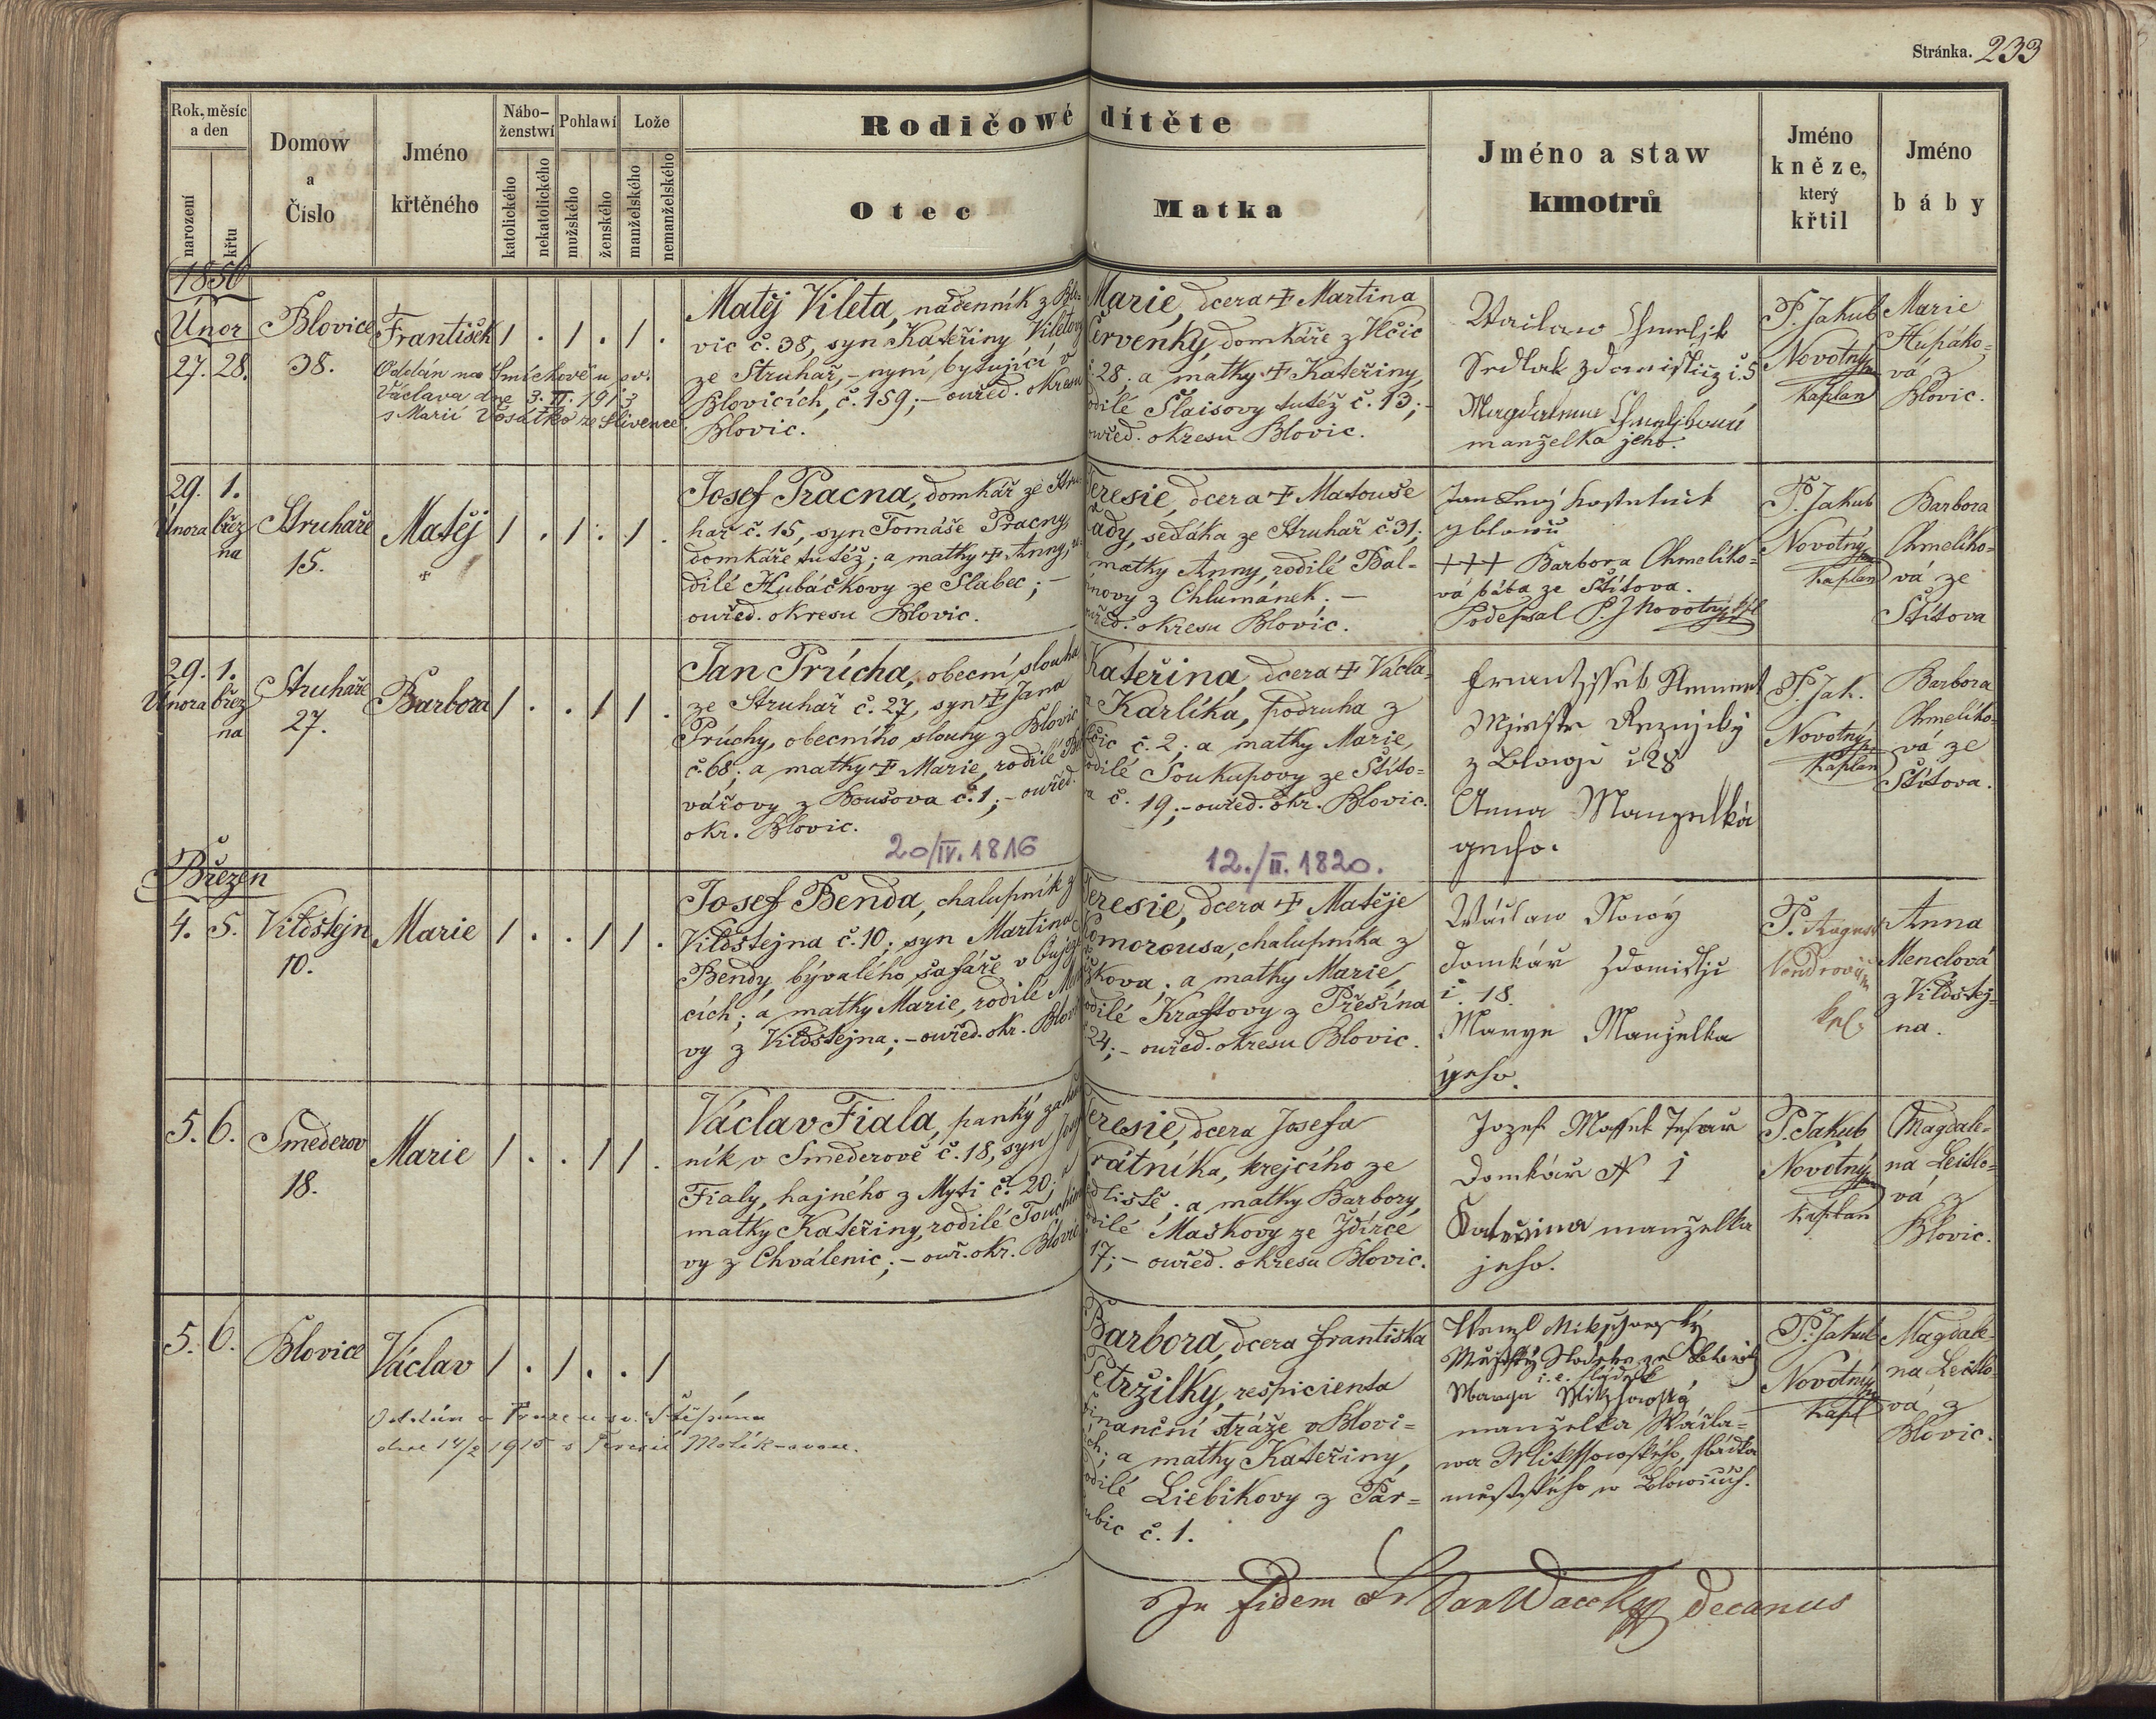 Stránka. 233
Rok, měsíc
a den
narození
křtu
Domow
a
Číslo
Jméno
křtěného
Nábo-
ženstwí
katolického
nekatolického
Pohlawí
mužského
ženského
Lože
manželského
nemanželského
Rodičowé dítěte
Otec
Matka
Jméno a staw
kmotrů
Jméno
kněze,
který
křtil
Jméno
báby
1856
Únor
27. 28.
Blovice
38.
František
1 . 1 . 1 .
Oddán na Smíchově u sv.
Václava dne 3. II. 1913
s Marií ze Slivence
Matěj Vileta, nádenník z Blo-
vic č. 38, syn Kateřiny Viletovy
ze Struhař, - nyní bytující v
Blovicích, č. 159; - ouřed. okresu
Blovic.
Marie, dcera † Martina
Červenky, domkáře z Vlčic
č. 28; a matky † Kateřiny,
rodilé Šlaisovy tutéž č. 13; -
ouřed. okresu Blovic.
manželka jeho.
P. Jakub
Novotný
Kaplan
Marie
Hupáko-
vá z
Blovic.
29. 1.
Února břez
na
Struhaře
15.
Matěj
†
1 . 1 . 1 .
Josef Pracna, domkář ze Stru-
hař č. 15, syn Tomáše Pracny,
domkáře tutéž; a matky † Anny, ro-
dilé Hubáčkovy ze Slabec; -
ouřed. okresu Blovic.
Teresie, dcera † Matouše
sedláka ze Struhař č. 31;
matky Anny, rodilé Bal-
z Chlumánek. -
ouřed. okresu Blovic.
+++ Barbora Chmelíko-
vá bába ze Štítova.
Podepsal P. J Novotný kpl
P. Jakub
Novotný
Kaplan
Barbora
Chmelíko-
vá ze
Štítova
29. 1.
Února břez
na
Struhaře
27.
Barbora
1 . . 1 1 .
Jan Průcha, obecní slouha
ze Struhař č. 27, syn † Jana
Průchy, obecního slouhy z Blovic
č. 68; a matky † Marie, rodilé
vářovy z Boušova č. 1; - ouřed.
okr. Blovic.
20/IV. 1816
Kateřina, dcera † Václa-
va Karlíka, podruha z
Vlčic č. 2; a matky Marie,
rodilé Soukupovy ze Štíto-
va č. 19; - ouřed. okr. Blovic.
12./II. 1820.
Anna Manzelka
geho.
P. Jak.
Novotný
Kaplan
Barbora
Chmelíko-
vá ze
Štítova.
Březen
4. 5.
Vildštejn
10.
Marie
1 . . 1 1 .
Josef Benda, chalupník z
Vildštejna č. 10; syn Martina
Bendy, bývalého šafáře v
cích; a matky Marie, rodilé
vy z Vildštejna; - ouřed. okr. Blovic
Teresie, dcera † Matěje
Komorousa, chalupníka z
a matky Marie,
rodilé Kraftovy z Přešína
24; - ouřed. okresu Blovic.
Wáclaw Nowý
domkář
č. 18.
Marye Manželka
geho.
P. August
kpl.
Anna
Menclová
z Vildštej-
na.
5. 6.
Smederov
18.
Marie
1 . . 1 1 .
Václav Fiala, panský zahrad
ník v Smederově č. 18, syn Josefa
Fialy, hajného z Myti č. 20; a
matky Kateřiny, rodilé
vy z Chválenic; - ouř. okr. Blovic
Teresie, dcera Josefa
Vrátníka, krejčího ze
a matky Barbory,
rodilé Maškovy ze Ždírce
17; - ouřed. okresu Blovic.
Domkář N 1
Kateřina manželka
jeho.
P. Jakub
Novotný
Kaplan
Magdale-
na Leitlo-
vá z
Blovic.
5. 6.
Blovice
Václav
1 . 1 . . 1
Oddán v Praze u sv. Štěpána
dne 14/2 1915 s Terezií
Barbora, dcera Františka
Petržilky, respicienta
finanční stráže v Blovi-
cích; a matky Kateřiny,
rodilé Liebikovy z Par-
dubic č. 1.
i. e. sládek
manželka Wácla-
wa sládka
městského w Blowicích.
P. Jakub
Novotný
Kapl
Magdale-
na Leitlo-
vá z
Blovic.
In fidem decanus